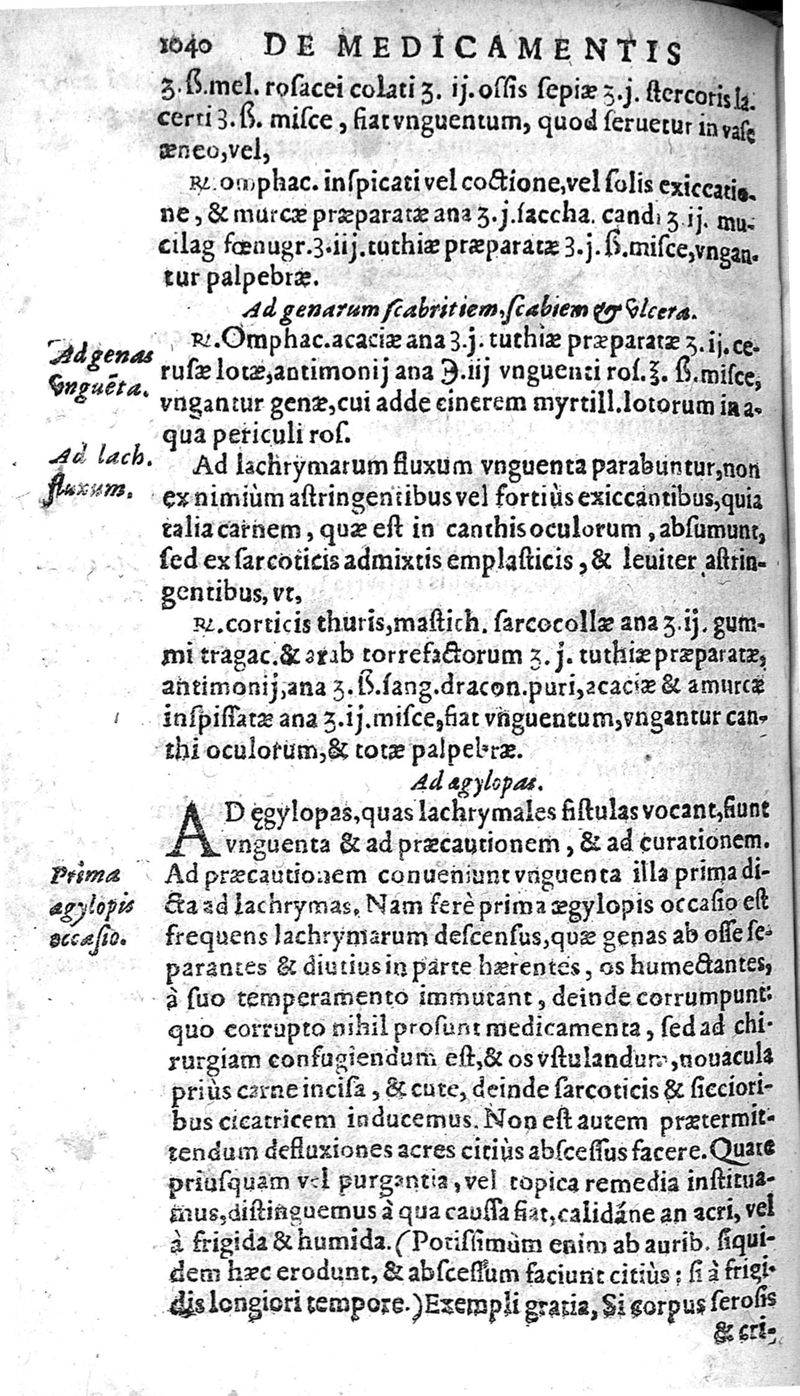 1040 DE MEDICAMENTIS
ʒ.ß.mel. roſacei colati ʒ. ij. oſſis ſepiæ ʒ.j. ſtercoris la-
certi ʒ.ß. miſce, fiat vnguentum, quod ſeruetur in vaſe
æneo, vel,
℞. omphac. inſpicati vel coctione, vel ſolis exiccatio-
ne, & murcæ præparatæ ana ʒ.j. ſaccha. candi ʒ ij. mu-
cilag fœnugr.ʒ.iij. tuthiæ præparatæ ʒ.j.ß.miſce, vngan-
tur palpebræ.
Ad genarum ſcabritiem, ſcabiem & vlcera.
Ad genas
vnguẽta.
℞.Omphac.acaciæ ana ʒ.j. tuthiæ præparatæ ʒ.ij.ce-
ruſæ lotæ, antimonij ana ℈.iij vnguenti roſ.ʒ. ß.miſce,
vngantur genæ, cui adde cinerem myrtill.lotorum in a-
qua periculi roſ.
Ad lach.
fluxum.
Ad lachrymarum fluxum vnguenta parabuntur, non
ex nimiùm aſtringentibus vel fortiùs exiccantibus, quia
talia carnem, quæ eſt in canthis oculorum, abſumunt,
ſed ex ſarcoticis admixtis emplaſticis, & leuiter aſtrin-
gentibus, vt,
℞.corticis thuris, maſtich. ſarcocollæ ana ʒ.ij. gum-
mi tragac.& arab torrefactorum ʒ. j. tuthiæ præparatæ,
antimonij, ana ʒ.ß.ſang.dracon.puri, acaciæ & amurcæ
inſpiſſatæ ana ʒ.ij.miſce, fiat vnguentum, vngantur can-
thi oculorum, & totæ palpebræ.
Ad ægylopas.
AD ęgylopas, quas lachrymales fiſtulas vocant, fiunt
vnguenta & ad præcautionem, & ad curationem.
Prima
ægylopis
occaſio.
Ad præcautionem conueniunt vnguenta illa prima di-
cta ad lachrymas. Nam ferè prima ægylopis occaſio eſt
frequens lachrymarum deſcenſus, quæ genas ab oſſe ſe-
parantes & diutius in parte hærentes, os humectantes,
à ſuo temperamento immutant, deinde corrumpunt:
quo corrupto nihil proſunt medicamenta, ſed ad chi-
rurgiam confugiendum eſt, & os vſtulandum, nouacula
priùs carne inciſa, & cute, deinde ſarcoticis & ſiccíori-
bus cicatricem inducemus. Non eſt autem prætermit-
tendum defluxiones acres citiùs abſceſſus facere. Quare
priuſquam vel purgantia, vel topica remedia inſtitua-
mus, diſtinguemus à qua cauſſa fiat, calidáne an acri, vel
à frigida & humida. (Potiſſimùm enim ab aurib. ſiqui-
dem hæc erodunt, & abſceſſum faciunt citiùs: ſi à frigi-
dis longiori tempore.) Exempli gratia, Si corpus ſeroſis
& cri-